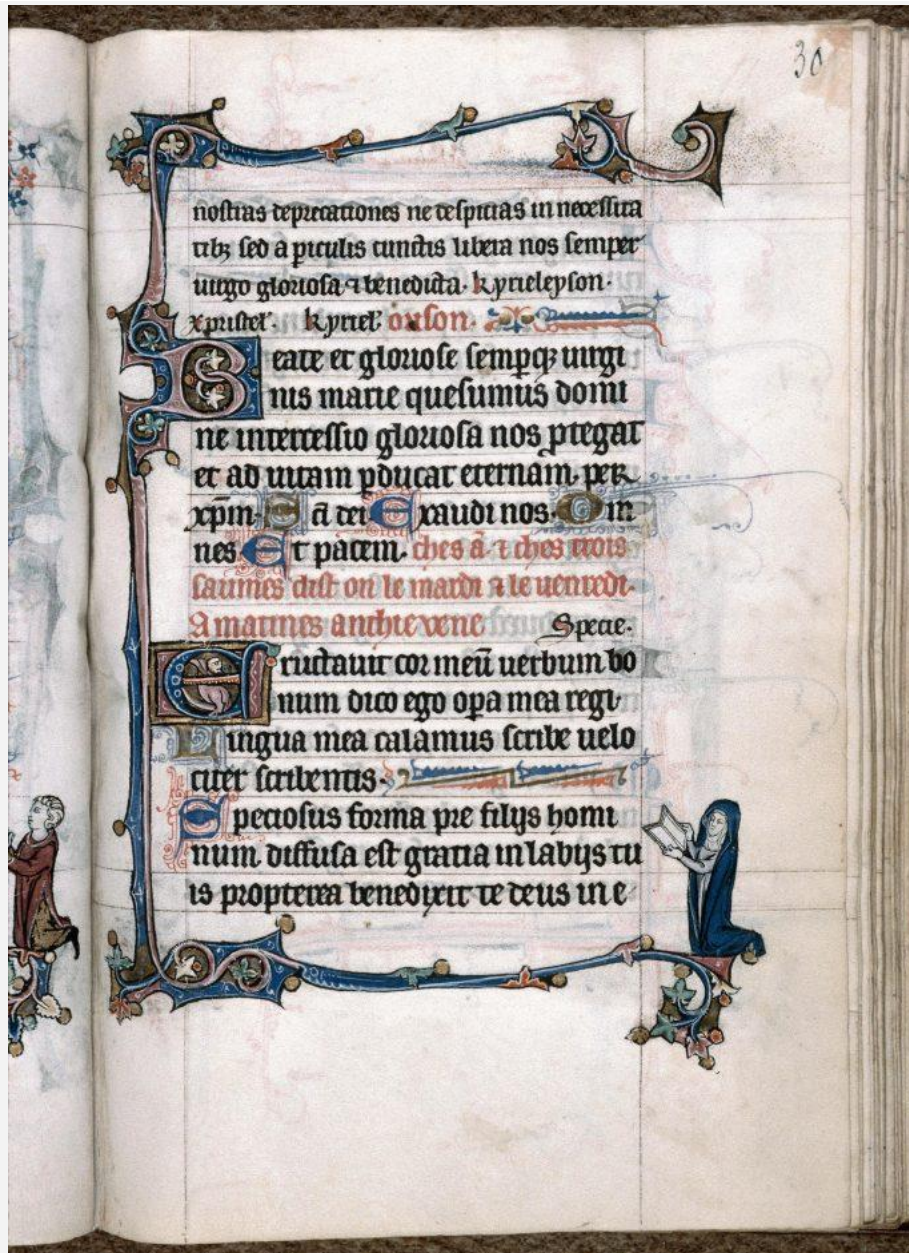 30
nostras deprecationes ne despicias in necessita
tibꝫ sed a ꝑiculis cunctis libera nos semper
uirgo gloriosa ⁊ benedicta. kyrieleyson.
xpristel̛. kyriel̛ orison.
Beate et gloriose sempqꝫ uirgi
nis marie quesumus domi
ne intercessio gloriosa nos ꝓtegat
et ad uitam ꝑducat eternam. per
xp̄m. ā dei Exaudi nos. Om
nes. Et pacem. ches ā. ⁊ ches trois
saumes dist on le mardi ⁊ le uenredi.
A matines anthievene Specie.
Eructauit cor meū uerbum bo
num dico ego oꝑa mea regi.
Lingua mea calamus scribe uelo
citer scribentis.
Speciosus forma pre filijs homi
num diffusa est gratia in labijs tu
is propterea benedixit te deus in e